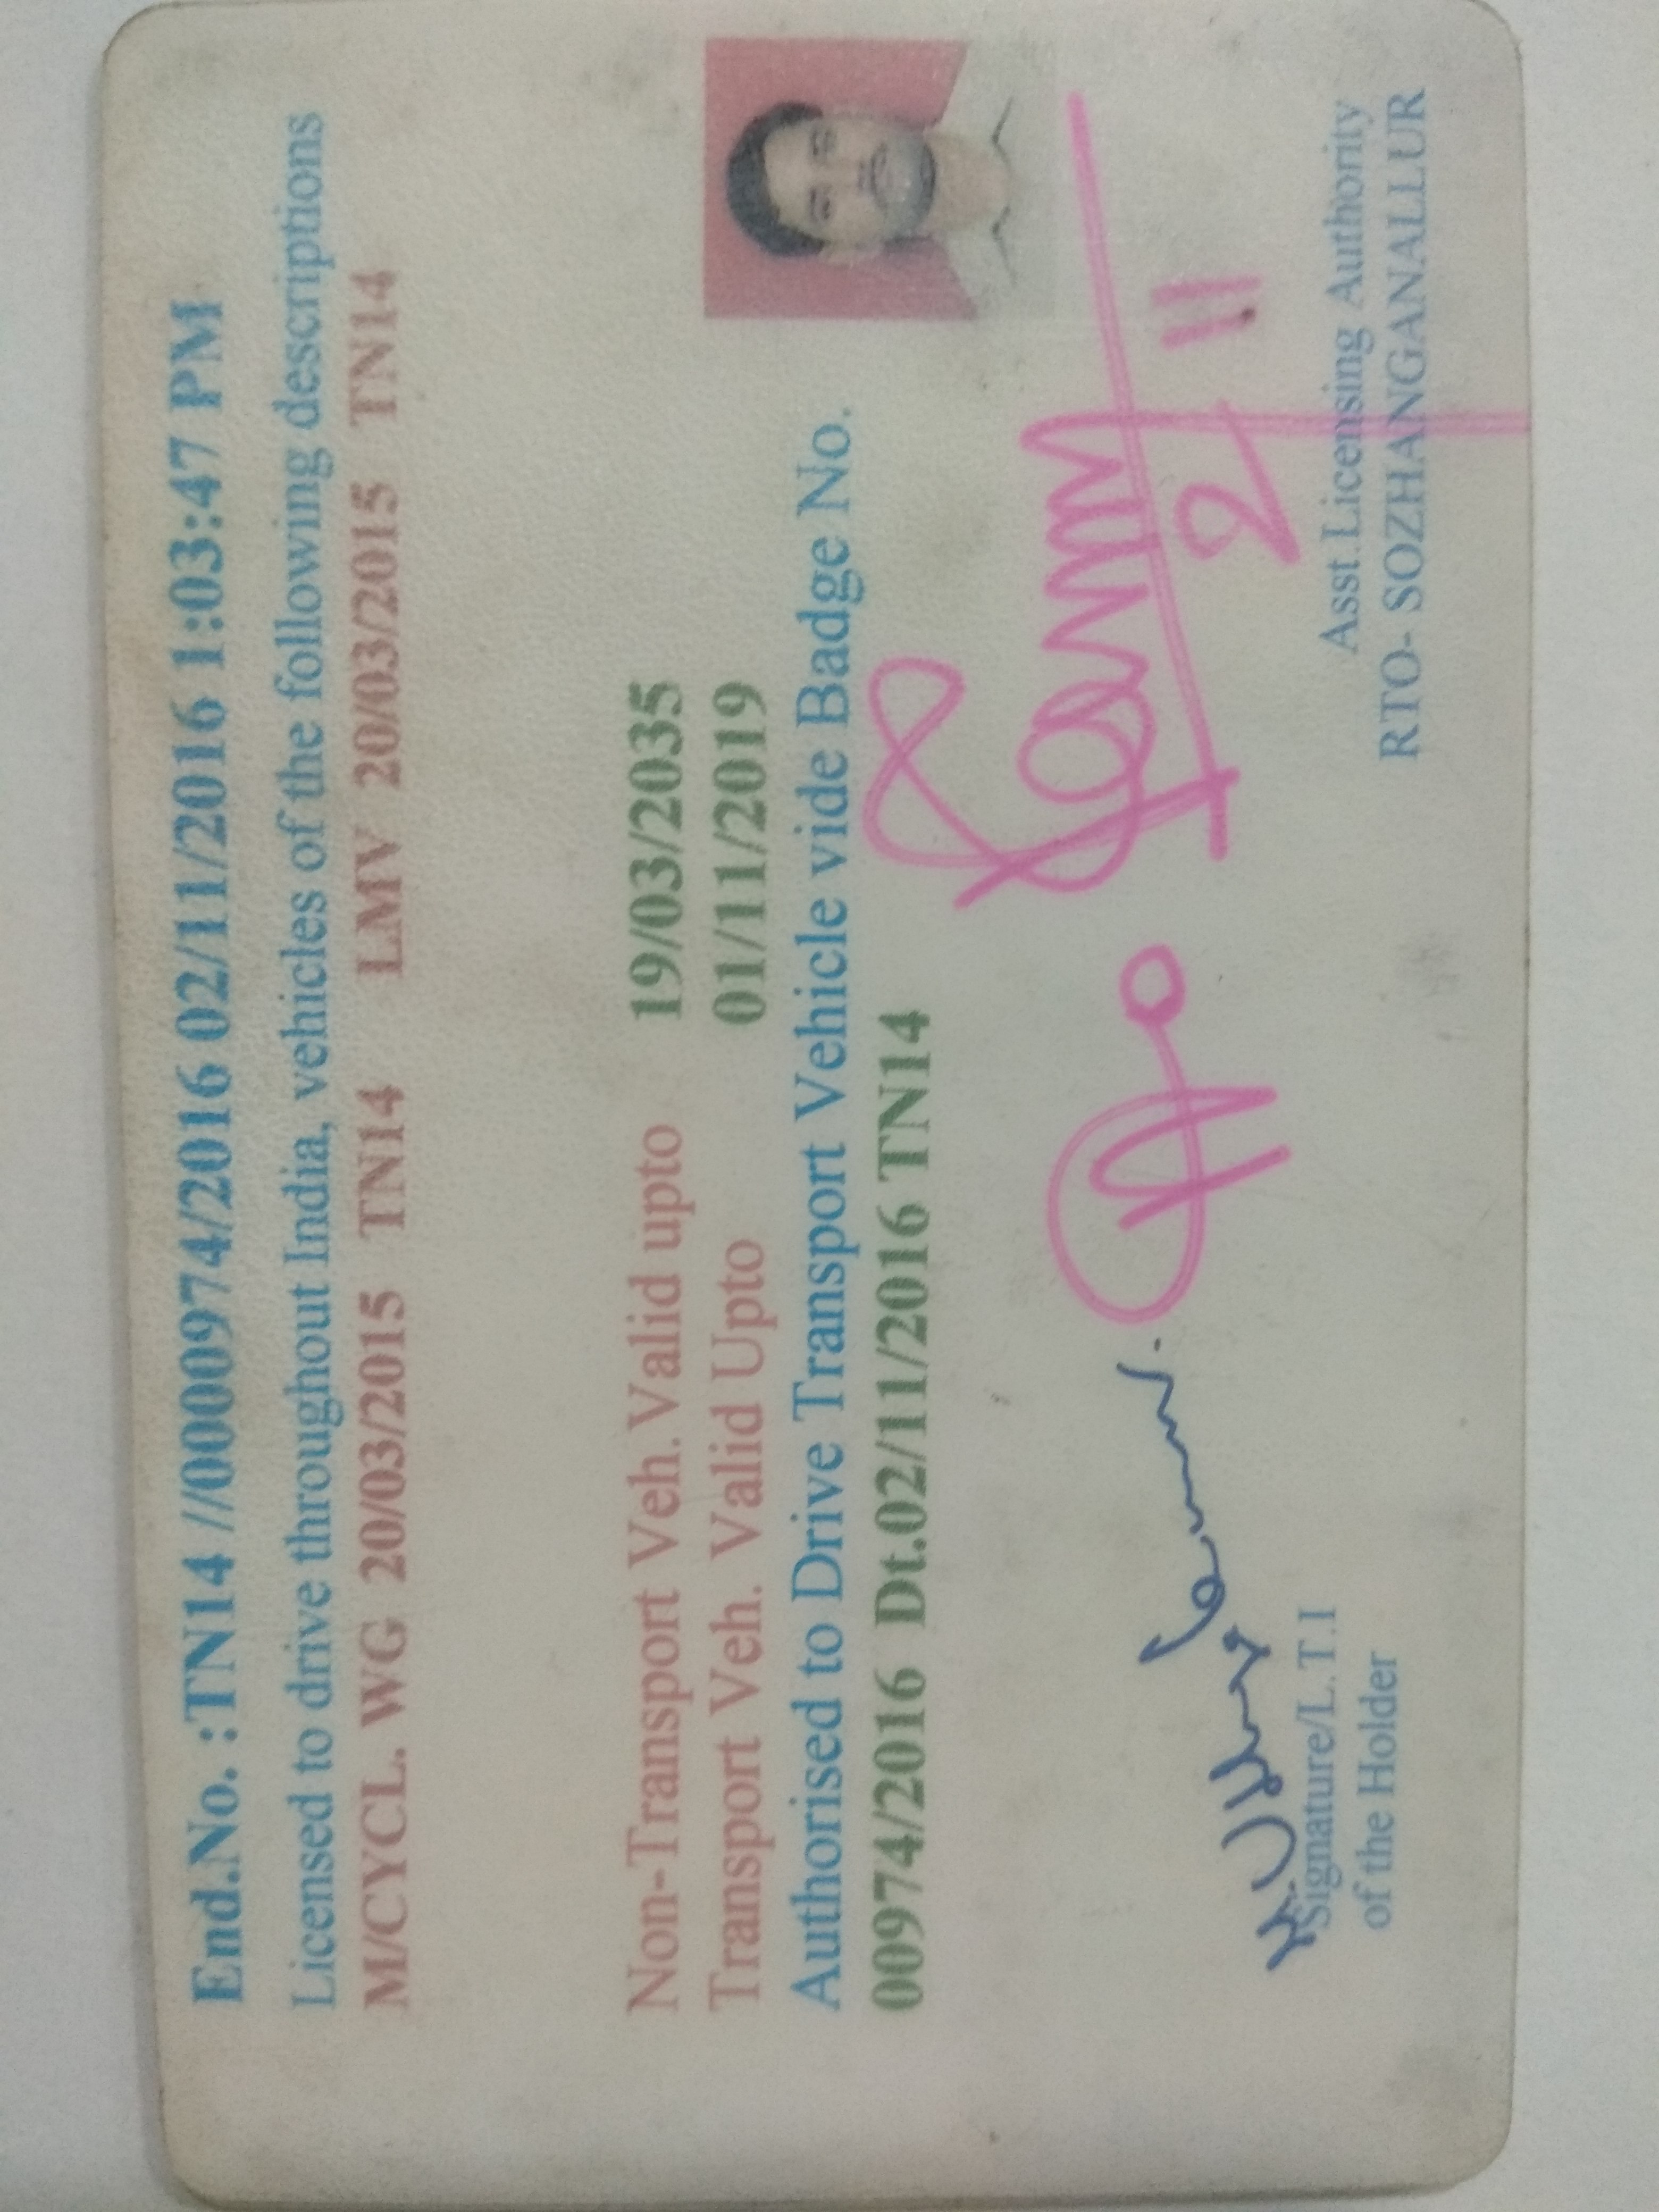 End.No. :TN14 //0000974/2016 02/11/2016 1:03:47 PM
Licensed to drive throughout India, vehicles of the following descriptions
M/CYCL. WG 20/03/2015 TN14 LMV 20/03/2015 TN14
Non-Transport Veh.Valid upto 19/03/2035
Transport Veh. Valid Upto 01/11/2019
Authorised to Drive Transport Vehicle vide Badge No.
00974/2016 Dt.02/11/2016 TN14
2 11
Signature/L.T.I
of the Holder
Asst.Licensing Authority
RTO- SOZHANGANALLUR